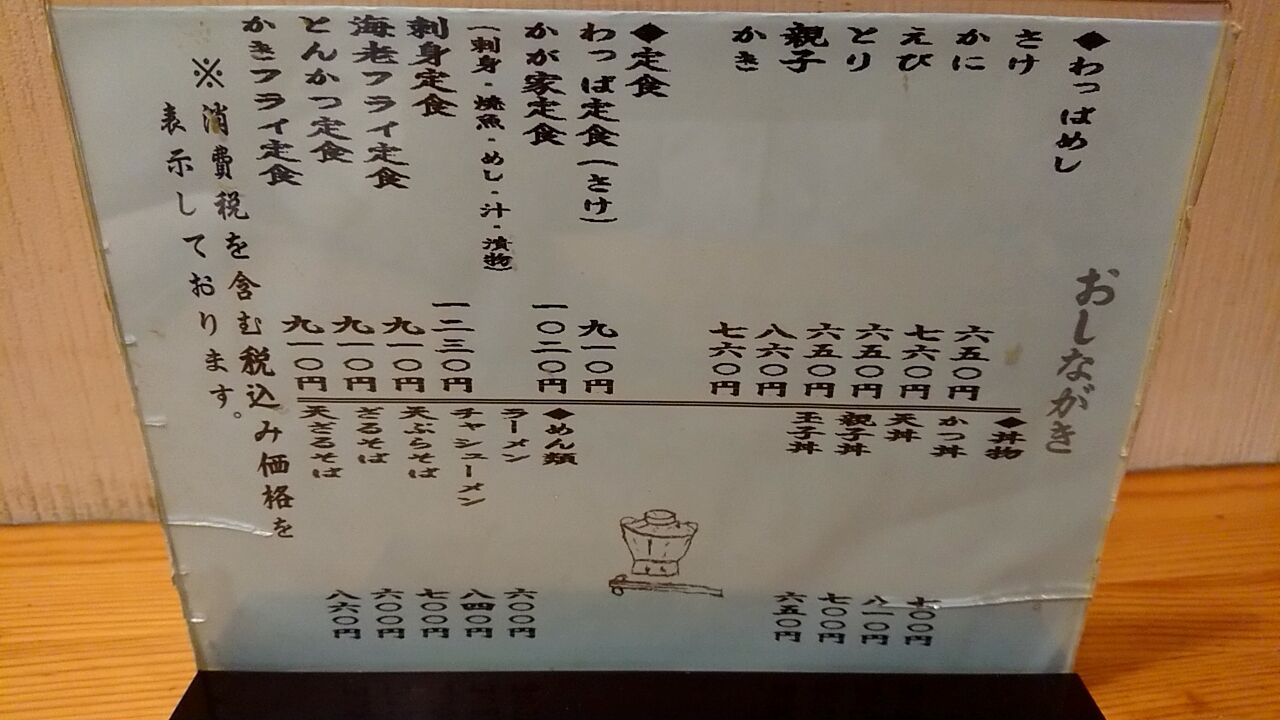 おしながき
◆わっぱめし
さけ 六五〇円
かに 七六〇円
えび 六五〇円
とり 六五〇円
親子 八六〇円
かき 七六〇円
◆定食
わっぱ定食(さけ) 九一〇円
かが家定食 一〇二〇円
(刺身・焼魚・めし・汁・漬物)
刺身定食 一二三〇円
海老フライ定食 九一〇円
とんかつ定食 九一〇円
かきフライ定食 九一〇円
◆丼物
かつ丼 七〇〇円
天丼 八一〇円
親子丼 七〇〇円
玉子丼 六五〇円
◆めん類
ラーメン 六〇〇円
チャシューメン 八四〇円
天ぷらそば 七〇〇円
ざるそば 六〇〇円
天ざるそば 八六〇円
※消費税を含む税込み価格を
表示しております。